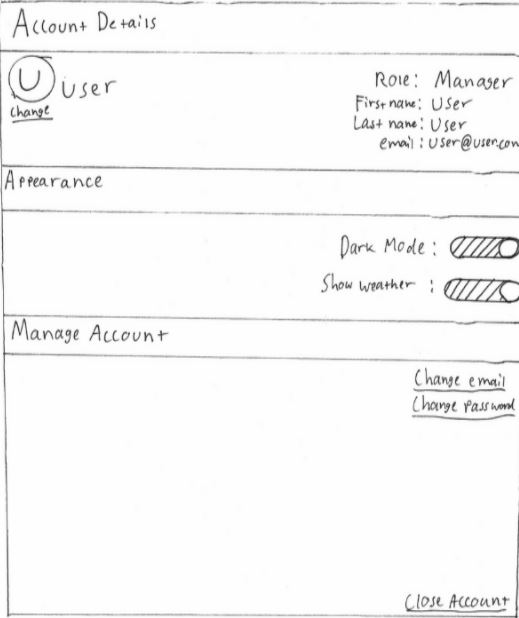 Account Details
U User
Change
Role: Manager
First name: User
Last name: User
email: User@user.com
Appearance
Dark Mode:
Show weather:
Manage Account
Change email
Change password
Close Account